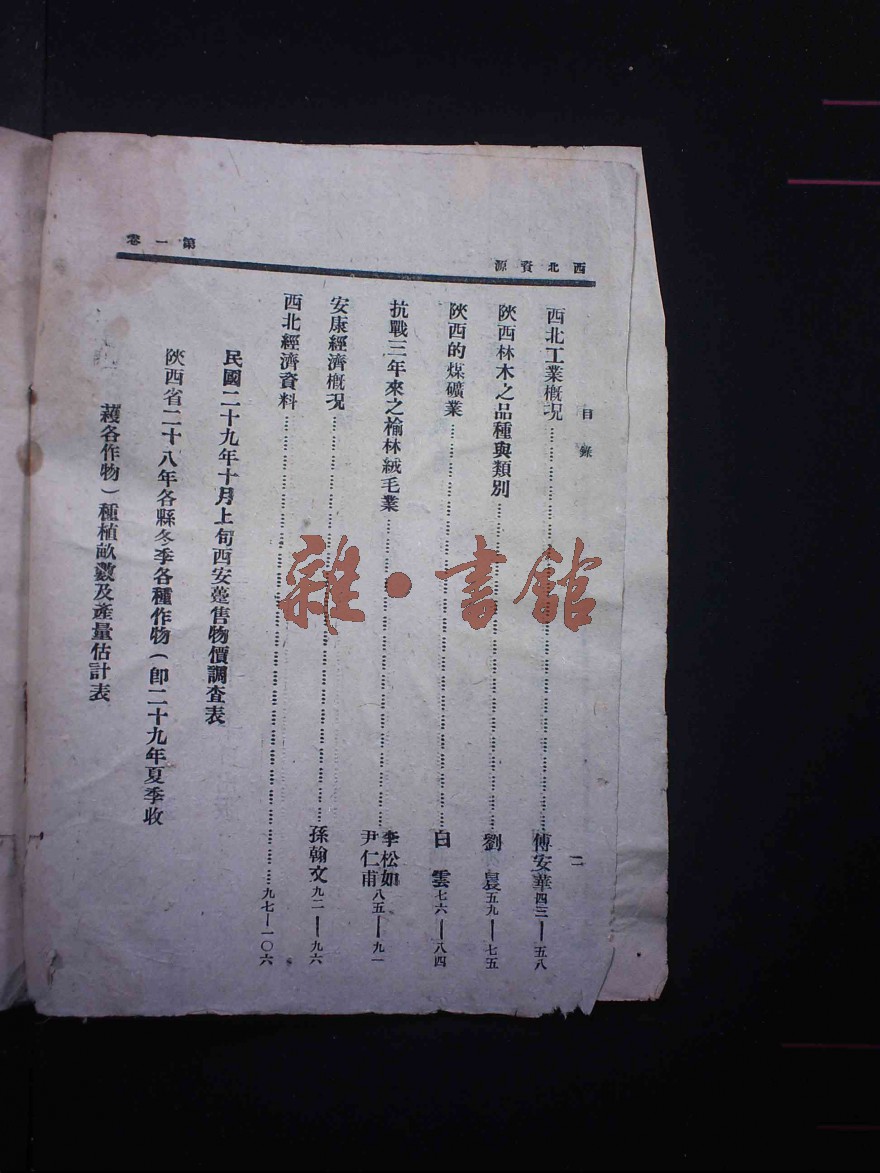 西北資源
第一卷
目錄
二
西北工業概況……傅安華四三—五八
陝西林木之品種與類別……劉 晨五九—七五
陝西的煤礦業……白 雲七六—八四
抗戰三年來之榆林絨毛業……李松如 尹仁甫八五—九一
安康經濟概況……孫翰文九二—九六
西北經濟資料……九七—一〇六
民國二十九年十月上旬西安躉售物價調查表
陝西省二十八年各縣冬季各種作物(卽二十九年夏季收
穫各作物)種植畝數及產量估計表
雜·書館